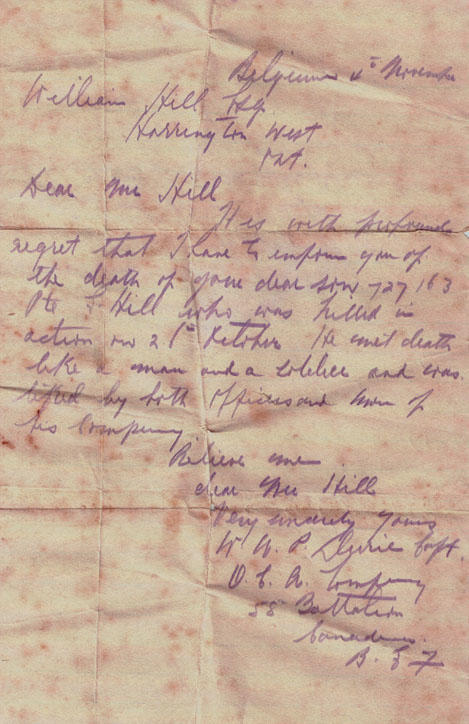 Belgium 4th November
William Hill Esq
Harrington West
Ont.
Dear Mr Hill
It is with profound
regret that I have to inform you of
the death of your dear son 727163
Pte F Hill who was killed in
action on 26th October He met death
like a man and a soldier and was
liked by both Officers and men of
his Company
Believe me
dear Mr Hill
Very sincerely yours
W. A. P. Capt.
O. C. A. Company
58 Battalion
Canadians.
B. E F